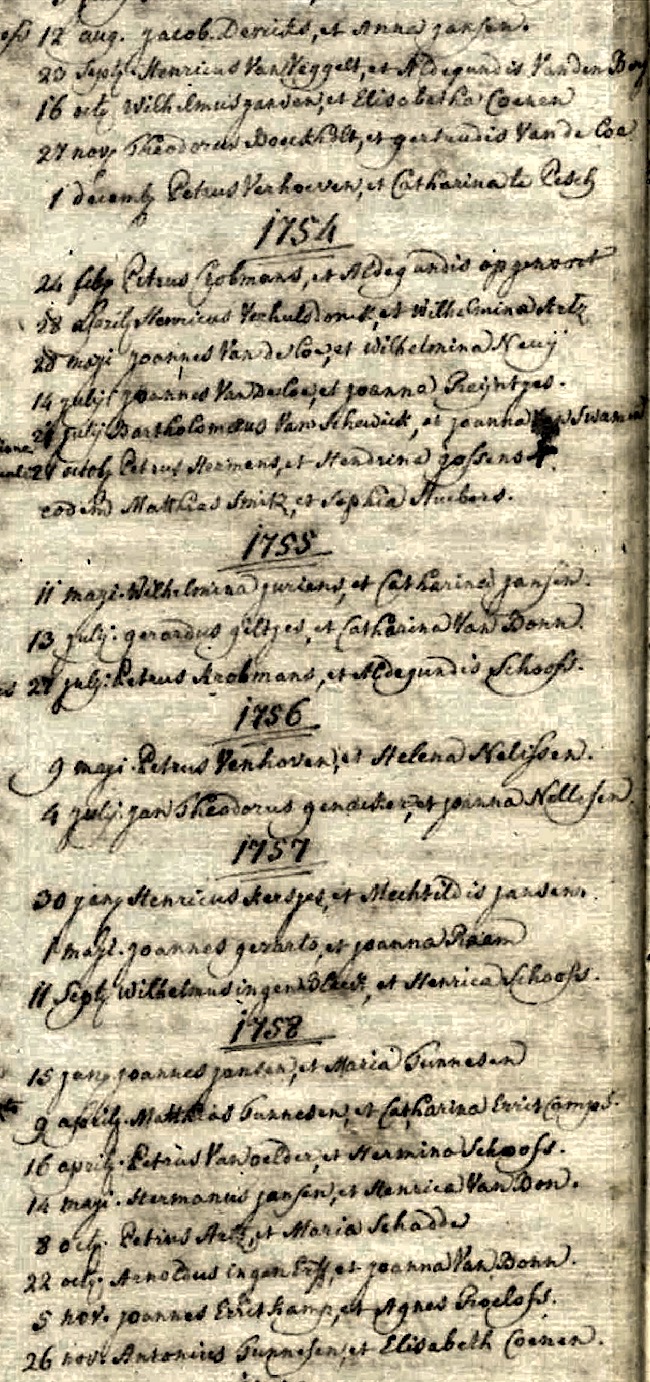 12 aug. jacob Derricks, et Anna jansen.
23 Septb Henricus Van Veggelt, et Aldegundis Vanden
16 octb Wilhelmus jansen, et Elisabetha Coenen
27 novb Theodorus Boeckholt, et gertrudis Van de Coe
1 decemb Petrus Verhoeven, et Catharina te Pesch
1754
24 feb Petrus Crobmans, et Aldegundis opgenoort
28 april Henricus Verhulsdonck, et Wilhelmina Artz
20 maji joannes Van de Loe, et Wilhelmina Neuij
14 julij joannes Van de Loe, et joanna Reijntges.
21 julij Bartholomaeus Van Schewick, et joanna
21 octob Petrus Hermens, et Hendrina gossens
eodem Matthias Smitz, et Sophia Huebers.
1755
11 maji Wilhelmina jurians, et Catharina jansen.
13 julij gerardus giltjes, et Catharina Van Bonn.
27 julij Petrus Krobmans, et Aldegundis Schooss.
1756
9 maji Petrus Venhoven, et Helena Nelissen.
4 julij jan Theodorus et joanna Nellesen
1757
30 jan Henricus Kersjes, et Mechtildis jansen.
1 maji joannes gerarts, et joanna Raam
11 Septb Wilhelmus ingen et Henrica Schooss.
1758
15 jan joannes jansen, et Maria Tunnesen
9 april Matthias Tunnesen, et Catharina Erritcamps.
16 april Petrus Van oelder, et Hermina Schooss.
14 maji Hermanus jansen, et Henrica Van Bon.
8 octb Petrus Artz, et Maria Schadde
22 octb Arnoldus ingen Erff, et joanna Van Bonn.
5 nov. joannes Erritkamp, et Agnes Roeloss.
26 nov. Antonius Tunnesen, et Elisabeth Coenen.